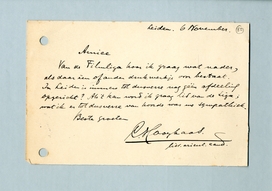 Leiden, 6 November
Amice
Van de Filmliga hoor ik graag wat nader,
als daar een of ander drukwerkje van bestaat.
In Leiden is immers tot dusverre nog geen afdeeling
opgericht? Als 't kan word ik graag lid van de liga,
wat ik er tot dusverre van hoorde was me sympathiek.
Beste groeten